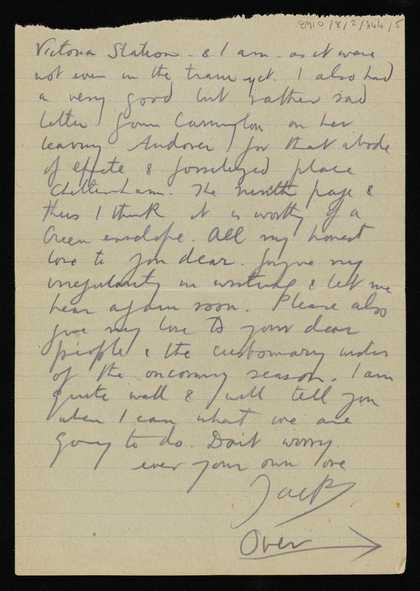 8910/8/2/344/5
Victoria Station - & I am - as it were
not even in the train yet. I also had
a very good but rather sad
letter from Carrington on her
leaving Andover for that abode
of effete & fossilized place
Cheltenham. The ninth page &
thus I think it is worthy of a
Green envelope. All my honest
love to you dear. forgive my
irregularity in writing & let me
hear again soon. Please also
give my love to your dear
people & the customary
of the oncoming season. I am
quite well & will tell you
when I can what we are
going to do. Don't worry.
ever your own love
Jack
Over